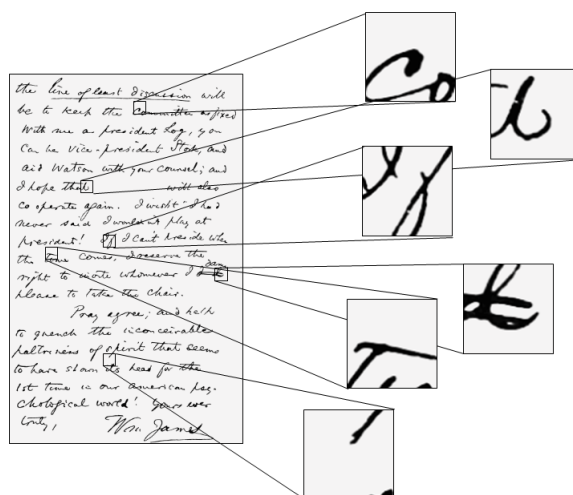 the line of least discussion will
be to keep the committee as fixed
With me as president Log, you
Can be Vice-president Stock, and
aid Watson with your counsel; and
I hope that will also
cooperate again. I wish I had
never said I wouldn't play at
president! If I can't preside when
the time comes, I reserve the
right to invite whomever I
please to take the chair.
Pray agree; and help
to quench the inconceivable
paltriness of spirit that seems
to have shown its head for the
1st time in our american psy-
chological world! Yours ever
truly, Wm. James